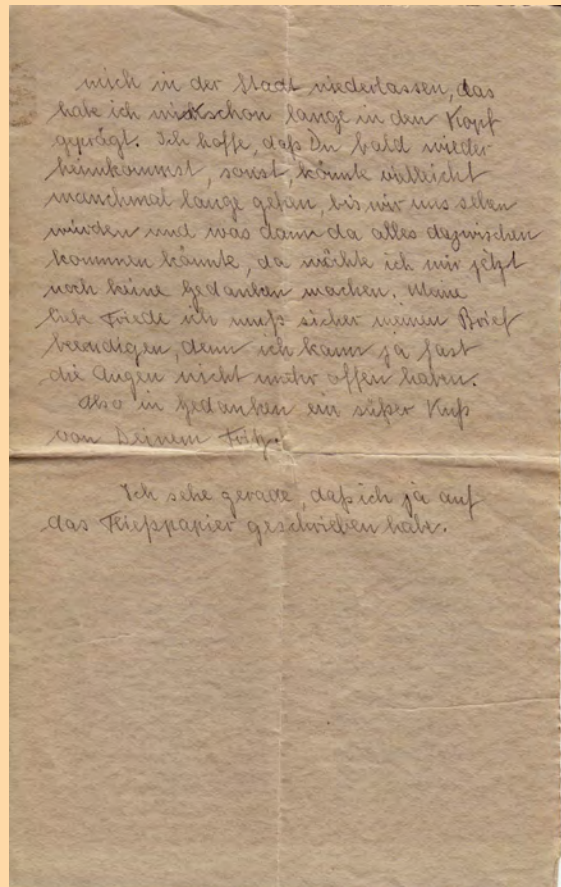 mich in der Stadt niederlassen, das
habe ich mir schon lange in den Kopf
geprägt. Ich hoffe, daß Du bald wieder
heimkommst, sonst könnte vielleicht
manchmal lange gehen, bis wir uns sehen
würden und was dann da alles dazwischen
kommen könnte, da möchte ich mir jetzt
noch keine Gedanken machen. Meine
liebe Friede ich muß sicher meinen Brief
beendigen, denn ich kann ja fast
die Augen nicht mehr offen haben.
Also in Gedanken ein süßer Kuß
von Deinem Fritz.
Ich sehe gerade, daß ich ja auf
das Fließpapier geschrieben habe.